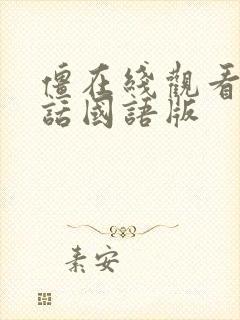 僵在綫觀看
話國語版
素安